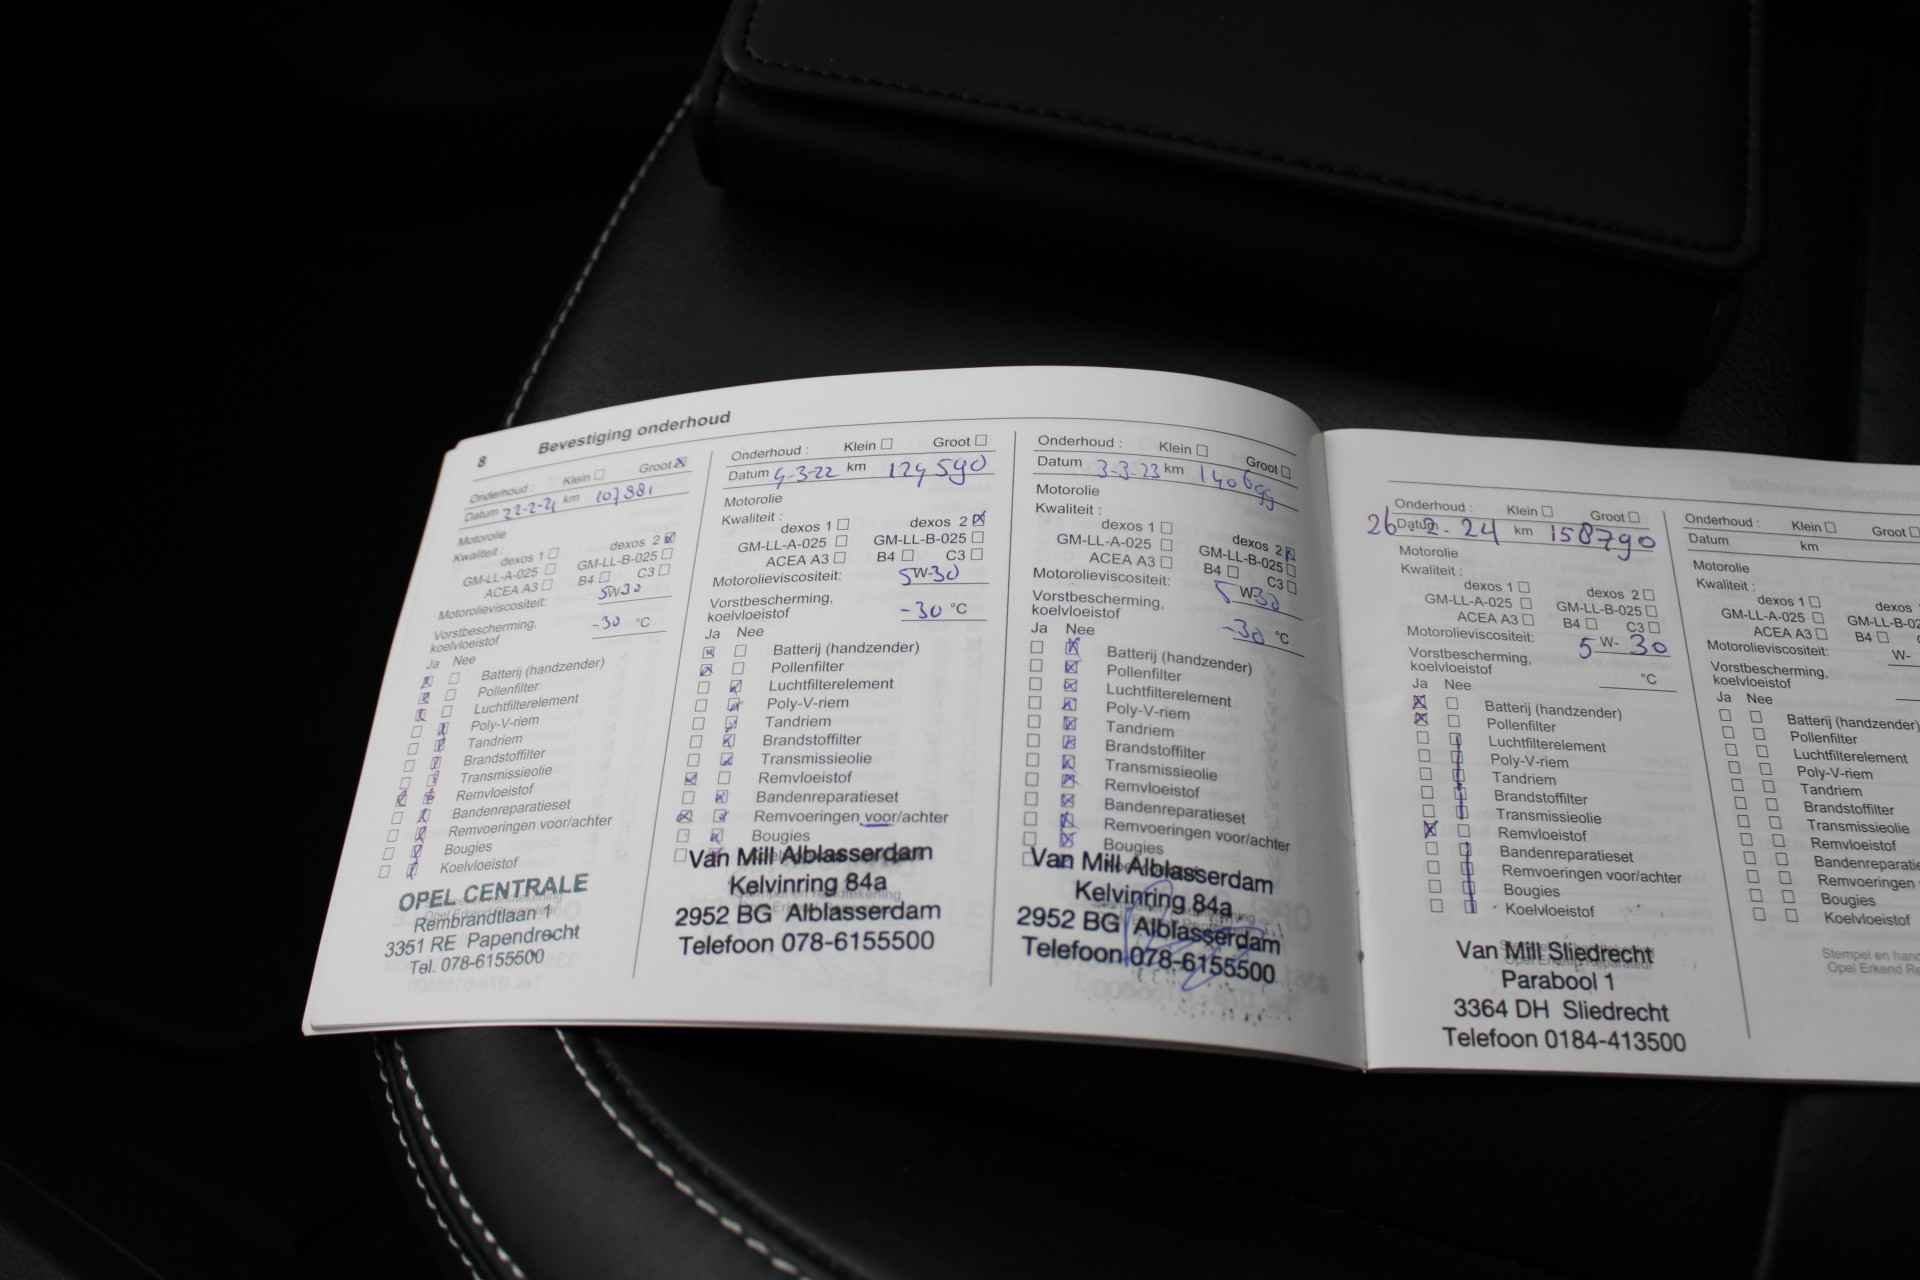 8 Bevestiging onderhoud
Onderhoud : Klein Groot
Datum 22-2-21 km 107881
Motorolie
Kwaliteit :
dexos 1 dexos 2
GM-LL-A-025 GM-LL-B-025
ACEA A3 B4 C3
Motorolieviscositeit: 5W30
Vorstbescherming,
koelvloeistof -30 °C
Ja Nee
Batterij (handzender)
Pollenfilter
Luchtfilterelement
Poly-V-riem
Tandriem
Brandstoffilter
Transmissieolie
Remvloeistof
Bandenreparatieset
Remvoeringen voor/achter
Bougies
Koelvloeistof
OPEL CENTRALE
Rembrandtlaan 1
3351 RE Papendrecht
Tel. 078-6155500
Onderhoud : Klein Groot
Datum 4-3-22 km 124590
Motorolie
Kwaliteit :
dexos 1 dexos 2
GM-LL-A-025 GM-LL-B-025
ACEA A3 B4 C3
Motorolieviscositeit: 5W-30
Vorstbescherming,
koelvloeistof -30 °C
Ja Nee
Batterij (handzender)
Pollenfilter
Luchtfilterelement
Poly-V-riem
Tandriem
Brandstoffilter
Transmissieolie
Remvloeistof
Bandenreparatieset
Remvoeringen voor/achter
Bougies
Van Mill Alblasserdam
Kelvinring 84a
2952 BG Alblasserdam
Telefoon 078-6155500
Onderhoud : Klein Groot
Datum 3-3-23 km 140699
Motorolie
Kwaliteit :
dexos 1 dexos 2
GM-LL-A-025 GM-LL-B-025
ACEA A3 B4 C3
Motorolieviscositeit: 5W30
Vorstbescherming,
koelvloeistof -30 °C
Ja Nee
Batterij (handzender)
Pollenfilter
Luchtfilterelement
Poly-V-riem
Tandriem
Brandstoffilter
Transmissieolie
Remvloeistof
Bandenreparatieset
Remvoeringen voor/achter
Bougies
Van Mill Alblasserdam
Kelvinring 84a
2952 BG Alblasserdam
Telefoon 078-6155500
Onderhoud : Klein Groot
Datum 26-2-24 km 158790
Motorolie
Kwaliteit :
dexos 1 dexos 2
GM-LL-A-025 GM-LL-B-025
ACEA A3 B4 C3
Motorolieviscositeit: 5 W- 30
Vorstbescherming,
koelvloeistof °C
Ja Nee
Batterij (handzender)
Pollenfilter
Luchtfilterelement
Poly-V-riem
Tandriem
Brandstoffilter
Transmissieolie
Remvloeistof
Bandenreparatieset
Remvoeringen voor/achter
Bougies
Koelvloeistof
Van Mill Sliedrecht
Parabool 1
3364 DH Sliedrecht
Telefoon 0184-413500
Onderhoud : Klein Groot
Datum km
Motorolie
Kwaliteit :
dexos 1 dexos
GM-LL-A-025 GM-LL-B-02
ACEA A3 B4
Motorolieviscositeit: W-
Vorstbescherming,
koelvloeistof
Ja Nee
Batterij (handzender)
Pollenfilter
Luchtfilterelement
Poly-V-riem
Tandriem
Brandstoffilter
Transmissieolie
Remvloeistof
Bandenreparatie
Remvoeringen
Bougies
Koelvloeistof
Stempel en hand
Opel Erkend Re